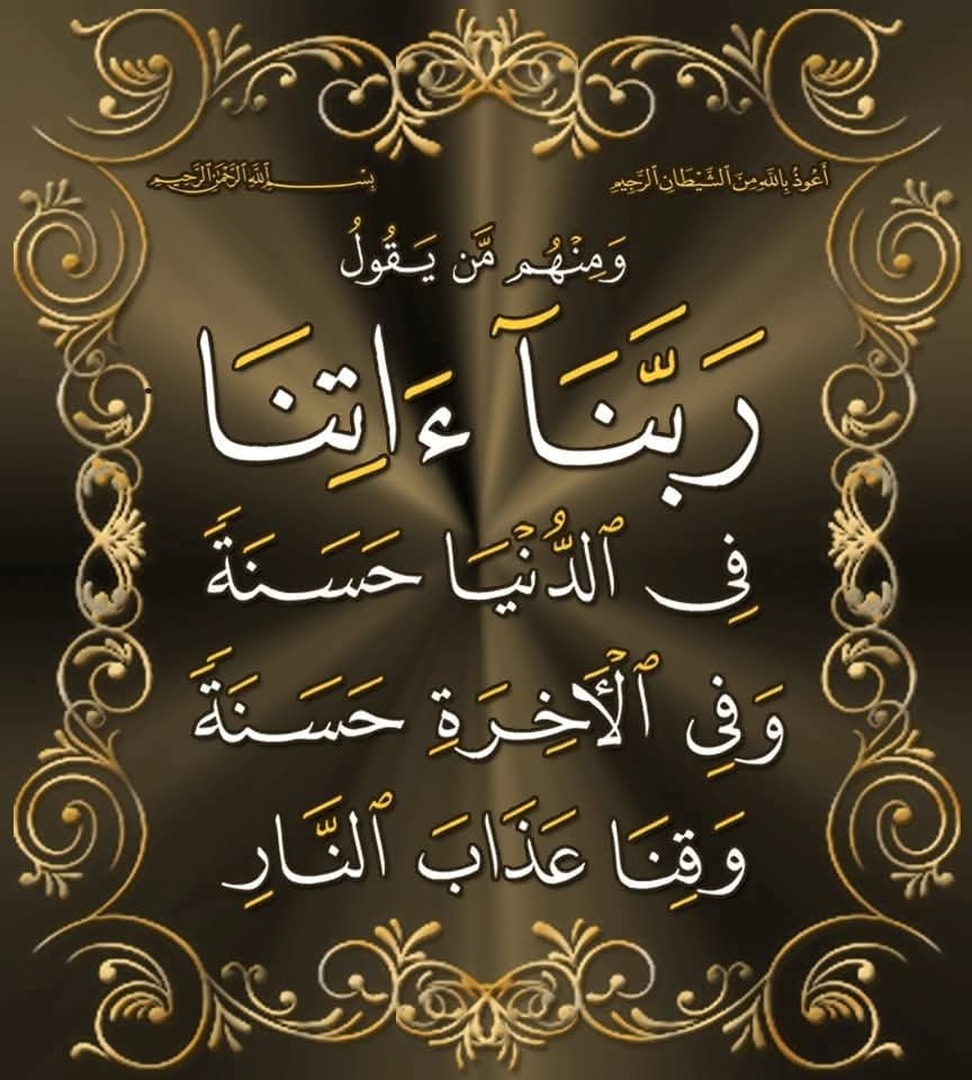 أَعُوذُ بِاللَّهِ مِنَ ٱلشَّيْطَانِ ٱلرَّجِيمِ
بِسْمِ ٱللَّهِ ٱلرَّحْمَٰنِ ٱلرَّحِيمِ
وَمِنْهُم مَّن يَقُولُ
رَبَّنَآ ءَاتِنَا
فِي ٱلدُّنْيَا حَسَنَةً
وَفِي ٱلْأَخِرَةِ حَسَنَةً
وَقِنَا عَذَابَ ٱلنَّارِ